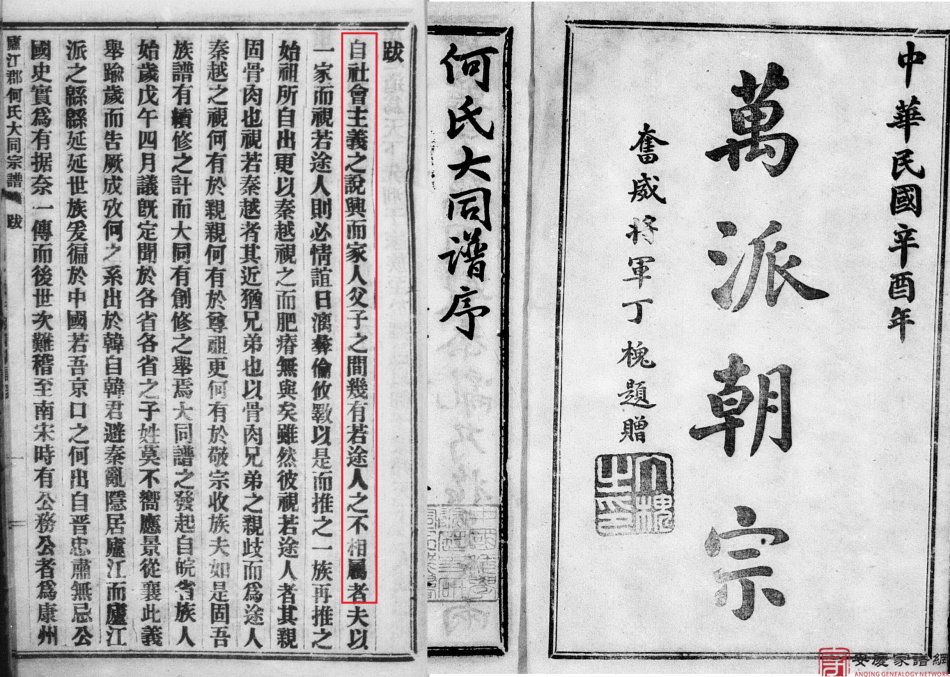 中華民國辛酉年
萬派朝宗
奮威將軍丁槐題贈
丁槐之印
何氏大同譜序
跋
自社會主義之說興而家人父子之間幾有若途人之不相屬者夫以
一家而視若途人則必情誼日漓彝倫攸斁以是而推之一族再推之
始祖所自出更以秦越視之而肥瘠無與矣雖然彼視若途人者其親
固骨肉也視若秦越者其近猶兄弟也以骨肉兄弟之親歧而爲途人
秦越之視何有於親親何有於尊祖更何有於敬宗收族夫如是固吾
族譜有續修之計而大同有創修之舉焉大同譜之發起自皖省族人
始歲戊午四月議旣定聞於各省各省之子姓莫不嚮應景從襄此義
舉踰歲而告厥成攷何之系出於韓自韓君避秦亂隱居廬江而廬江
派之緜緜延延世族爰徧於中國若吾京口之何出自晉忠肅無忌公
國史實爲有据奈一傳而後世次難稽至南宋時有公務公者爲康州
廬江郡何氏大同宗譜 跋
安慶家譜網
ANQING GENEALOGY NETWORK